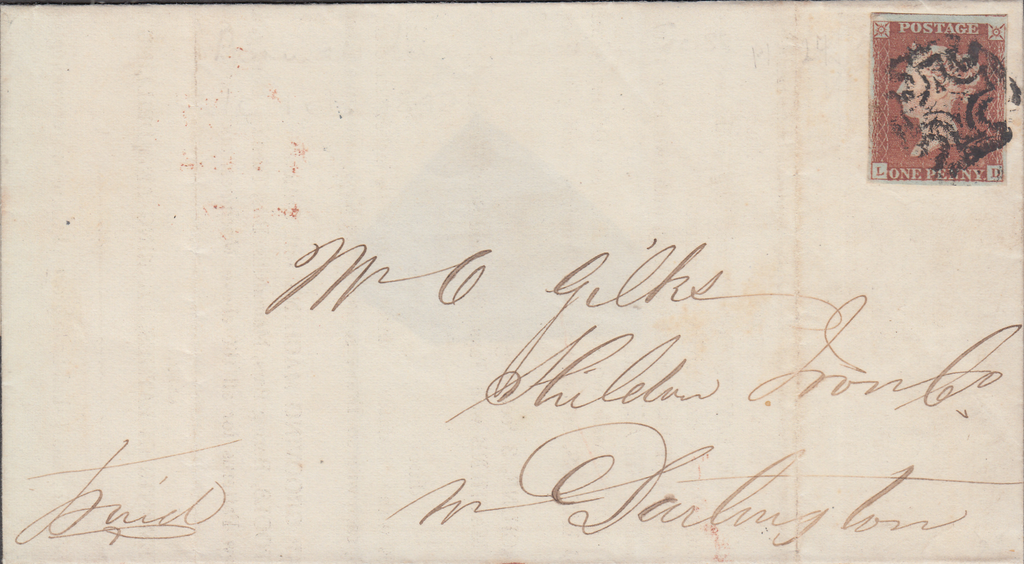 POSTAGE
L ONE PENNY D
Mr C Gilks
Shildon Iron Co.
nr Darlington